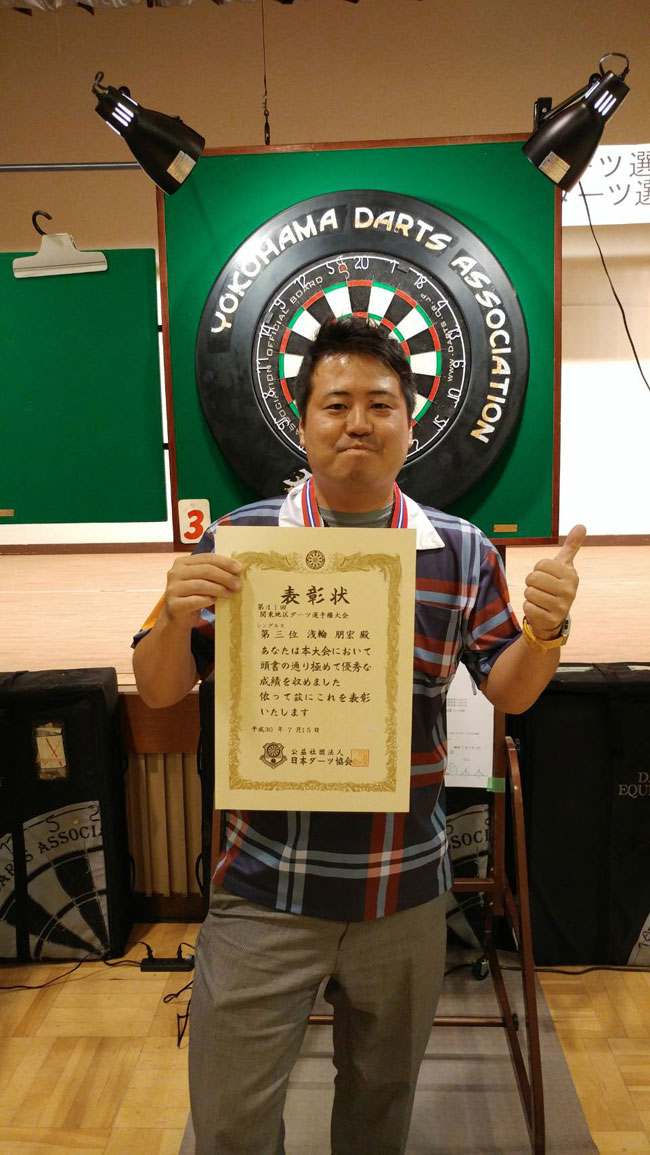 ーツ選
ーツ選
YOKOHAMA DARTS ASSOCIATION
OFFICIAL BOARD
20
1
18
4
12
9
14
11
3
表彰状
第41回
関東地区ダーツ選手権大会
シングルス
第三位 浅輪 朋宏 殿
あなたは本大会において
頭書の通り極めて優秀な
成績を収めました
依って茲にこれを表彰
いたします
平成30年7月15日
公益社団法人
日本ダーツ協会
DARTS ASSOC
EQUI